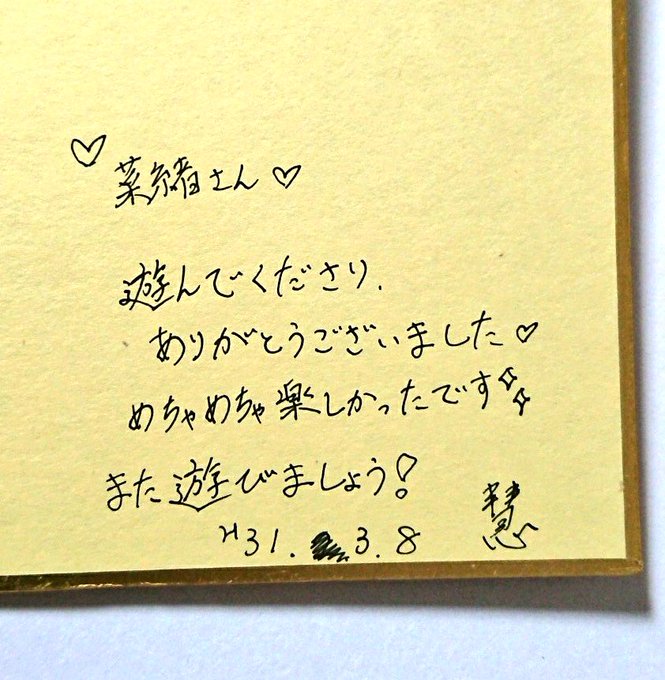 ♡菜緒さん♡
遊んでくださり、
ありがとうございました♡
めちゃめちゃ楽しかったです
また遊びましょう!
H31. 3.8 慧